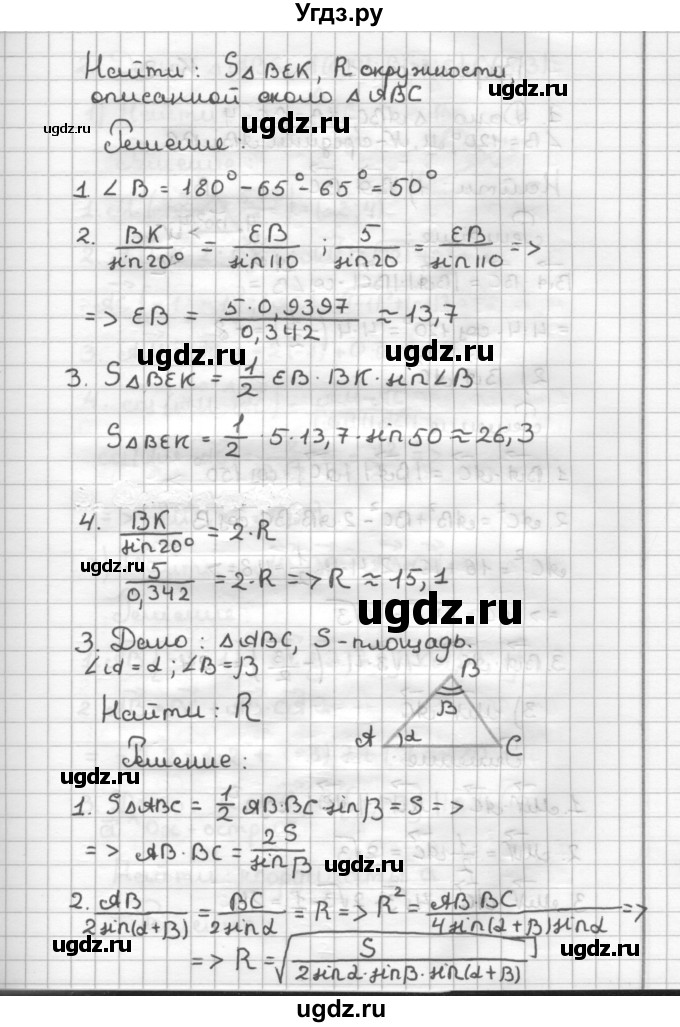 Угдз.ру
Найти: SΔBEK, R окружности,
описанной около ΔABC
ugdz.ru ugdz.ru ugdz.ru
Решение:
1 ∠B = 180° - 65° - 65° = 50°
2. BK/sin20° = EB/sin110 ; 5/sin20 = EB/sin110 =>
=> EB = 5·0,9397/0,342 ≈ 13,7
ugdz.ru ugdz.ru
3. SΔBEK = 1/2 EB·BK·sin∠B
SΔBEK = 1/2 · 5·13,7·sin50 ≈ 26,3
ugdz.ru
4. BK/sin20° = 2·R
5/0,342 = 2·R => R ≈ 15,1
ugdz.ru
3. Дано: ΔABC, S-площадь.
∠A = α; ∠B = β
B
Найти: R
β
A α C
Решение:
ugdz.ru
1. SΔABC = 1/2 AB·BC·sinβ = S =>
=> AB·BC = 2S/sinβ
ugdz.ru
2. AB/2sin(α+β) = BC/2sinα = R => R² = AB·BC/4sin(α+β)sinα =>
ugdz.ru ugdz.ru
=> R = √(S/2sinα·sinβ·sin(α+β))
ugdz.ru